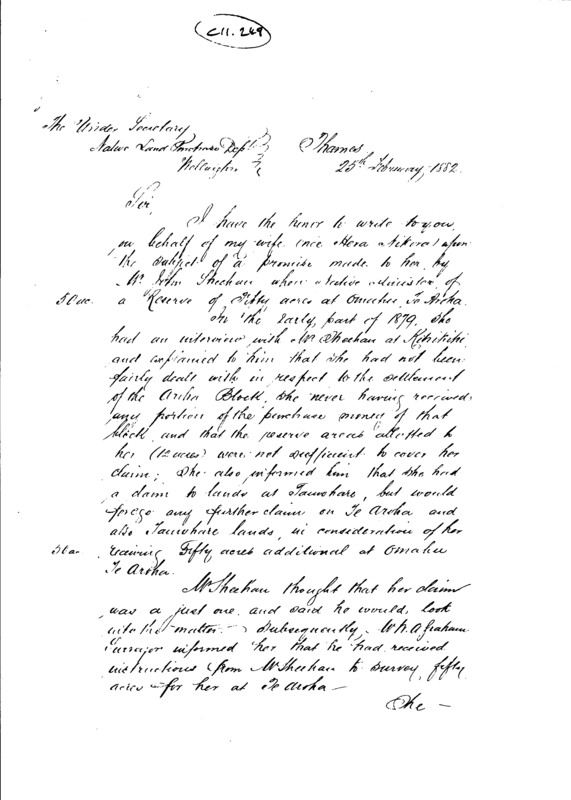 C11.249
The Under Secretary
Native Land Purchase Dept.
Wellington
Thames
25th February, 1882.
Sir,
I have the honor to write to you,
on behalf of my wife (née Hera Nikora) upon
the subject of a promise made to her by
Mr John Sheehan when Native Minister, of
50 ac. a Reserve of Fifty acres at Omahu, Te Aroha.
In the early part of 1879, she
had an interview with Mr Sheehan at Kihikihi
and explained to him that she had not been
fairly dealt with in respect to the settlement
of the Aroha Block, she never having received
any portion of the purchase money of that
block, and that the reserve areas allotted to
her (12 acres) were not sufficient to cover her
claim; She also informed him that she had
a claim to lands at Tauwhare, but would
forego any further claim on Te Aroha and
also Tauwhare lands, in consideration of her
50 ac. receiving Fifty acres additional at Omahu
Te Aroha.
Mr Sheehan thought that her claim
was a just one and said he would look
into the matter. Subsequently, W.A. Graham
Surveyor informed her that he had received
instructions from Mr Sheehan to survey fifty
acres for her at Te Aroha —
She —